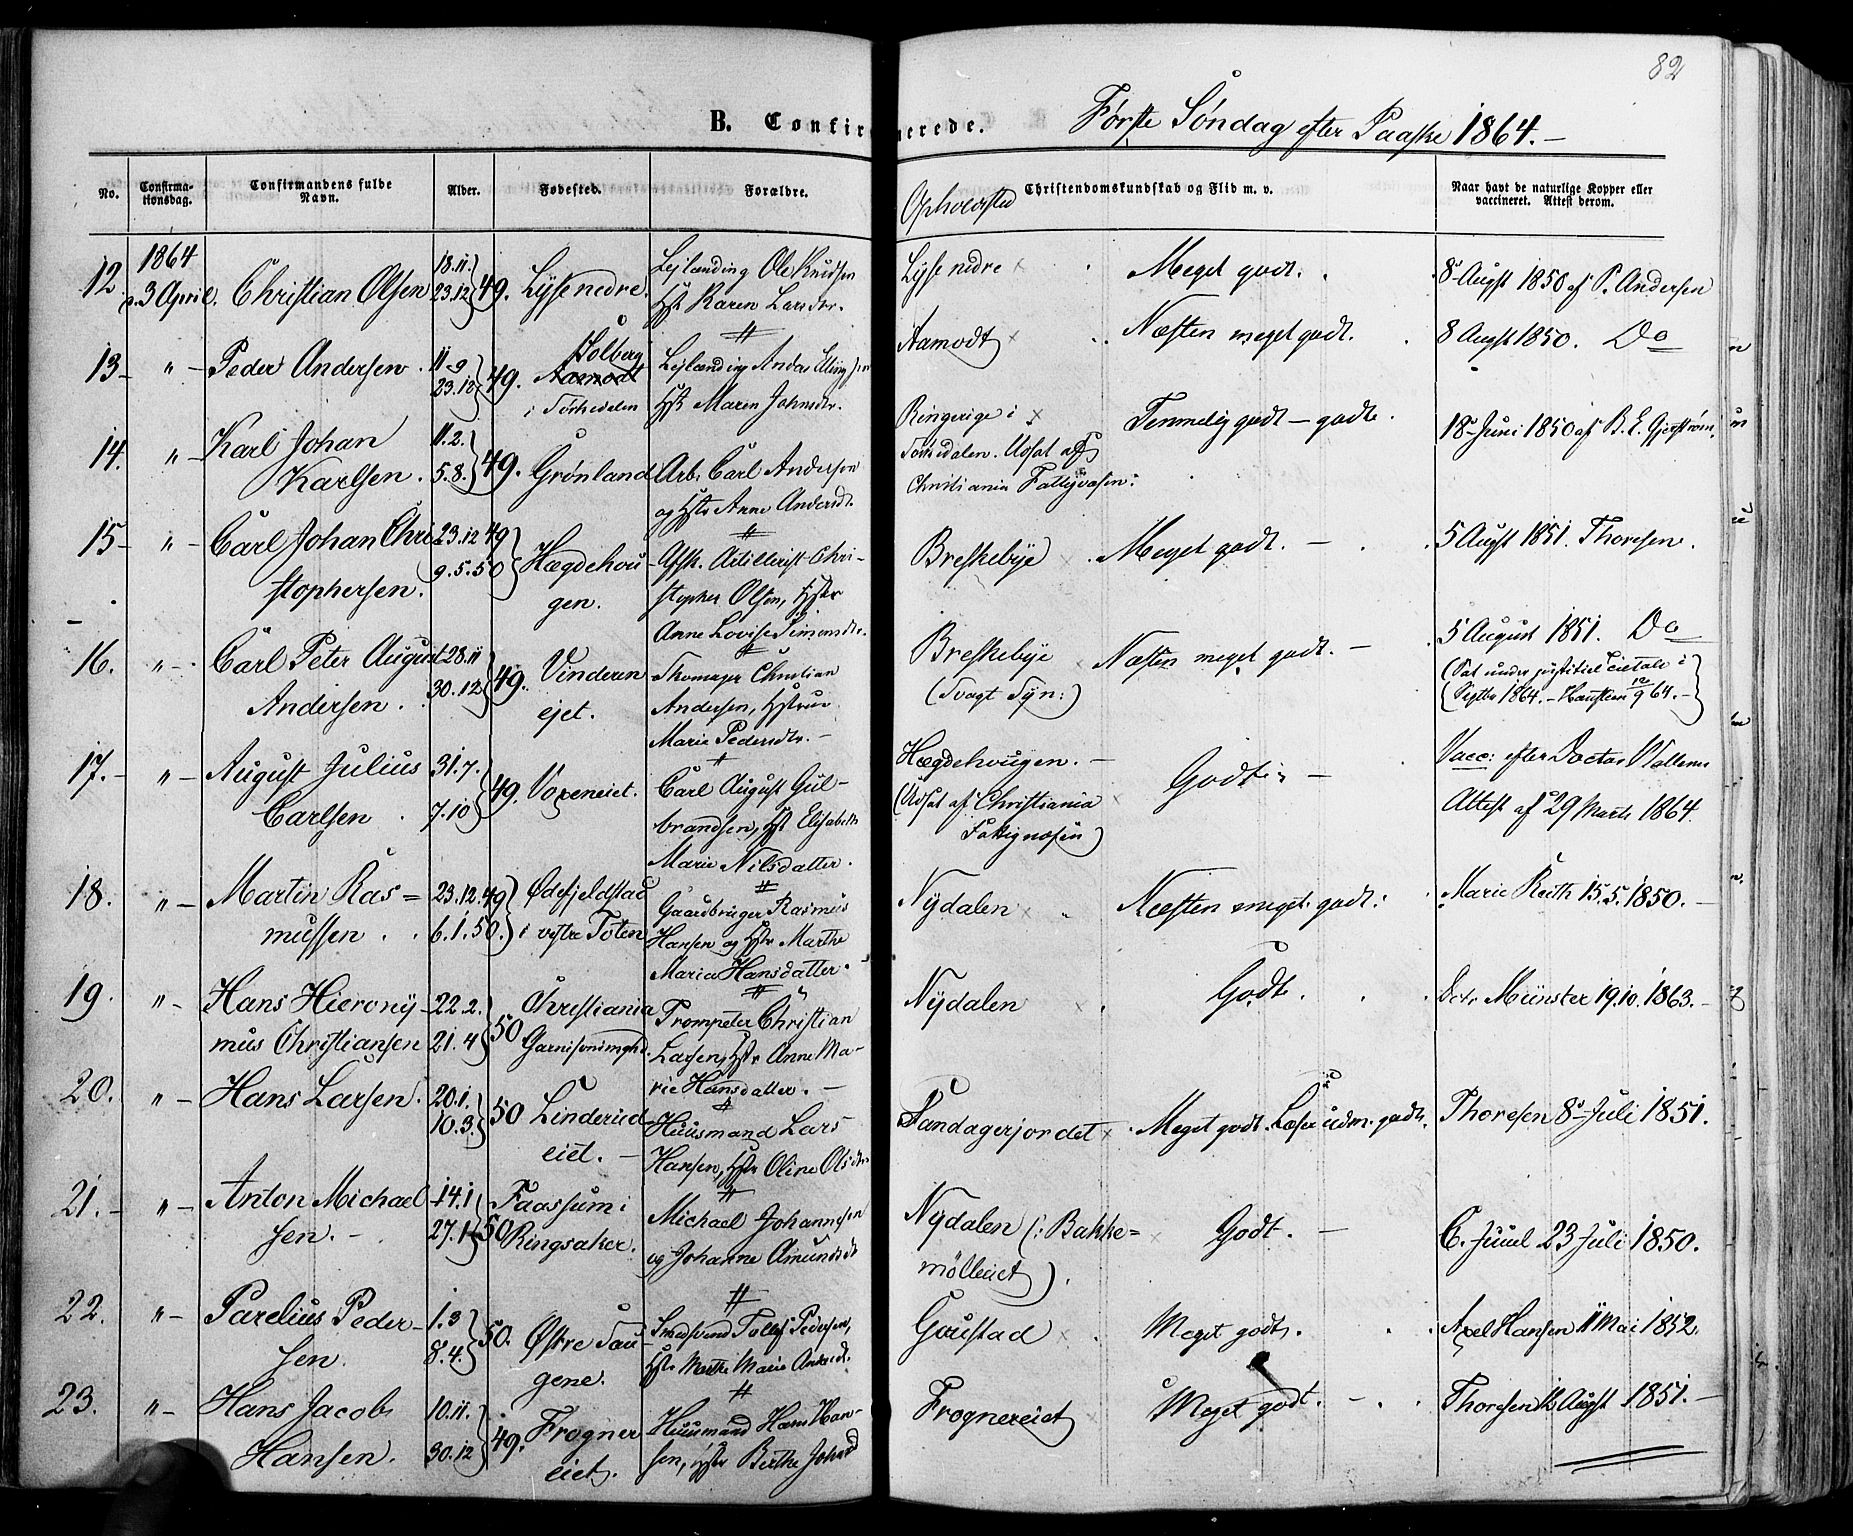 82
B. Confirmerede. Første Søndag efter Paaske 1864.—
No. Confirma-tionsdag. Confirmandens fulde Navn. Alder. Fødested. Forældre. Opholdssted Christendomskundskab og Flid m. v. Naar havt de naturlige Kopper eller vaccineret. Attest derom.
12. 1864 3 April. Christian Olsen 18.11. 23.12 49. Lysenedre. Lejlænding Ole Knudsen
Hst. Karen Larsdr.
Lysenedre Meget godt. 8 Augst 1850 af P. Andersen
13 " Peder Andersen. 11-9 23.12 49. Solberg
Aamodt
i Sørkedalen
Lejlænding Anders
Hst. Maren Johnsdr.
Aamodt Næsten meget godt. 8 Augst 1850. Do
14. " Karl Johan
Karlsen.
11.2. 5.8. 49. Grønland Arb. Carl Andersen
og Hstr Anne Andersdr.
Ringerige i
Udsat af
Christiania
Temmelig godt - godt. 18 Juni 1850 af
15 " Carl Johan Chri
stophersen.
23.12 49 9.5.50 Hægdehou
gen.
Afsk. Artillerist Chri-
stopher Olsen, Hstr
Anne Lovise Simonsdr.
Breskebye Meget godt. 5 Augst 1851. Thoresen.
16. " Carl Peter August
Andersen.
28.11 30.12 49. Vinderen
ejet.
Skomager Christian
Andersen, Hstrue
Marie Pedersdtr.
Breskebye
(Svagt Syn:)
Næsten meget godt. 5 August 1851. Do
17. " August Julius
Carlsen
31.7. 7.10 49. Voxeneiet. Carl August Gul-
brandsen, Hst Elisabeth
Marie Nilsdatter.
Hægdehougen.
(Udsat af Christiania
Fattigvæsen)
Godt. Vacc: efter Doctor
Attest af 29 Marts 1864.
18. " Martin Ras=
mussen
23.12.49 6.1.50. Ødefjeldstad
i vestre Toten
Gaardbruger Rasmus
Hansen og Hstr Marthe
Maria Hansdatter.
Nydalen Næsten meget godt: Marie Reith 15.5.1850.
19. " Hans Hierony-
mus Christiansen
22.2. 21.4 50 Christiania
Garnisonsmgh.
Trompeter Christian
Larsen, Hstr Anne Ma-
rie Hansdatter.
Nydalen Godt. Dctr Münster 19.10.1863.
20. " Hans Larsen. 20.1. 10.3. 50 Linderud
eiet.
Huusmand Lars
Hansen, Hstr Oline Olsdtr
Sandagerjordet Meget godt. Læser udm. godt. Thoresen 8 Juli 1851.
21. " Anton Michael
sen.
14.1 27.1 50 Faassum i
Ringsaker.
Michael Johannesen
og Johanne Amundsdt
Nydalen (: Bakke=
mølleeiet).
Godt. C. Juul 23 Juli 1850.
22. " Parelius Peder-
sen.
1.3 8.4. 50. Østre Tau
gene.
Smedsvend Tollef Pedersen,
Hstr Marthe Marie
Goustad Meget godt. Axel Hansen 11 Mai 1852.
23. " Hans Jacob
Hansen.
10.11. 30.12 49. Frogner
eiet.
Huusmand Hans Han-
sen, Hstr Berthe
Frognereiet Meget godt. Thoresen 12 Augst 1851.